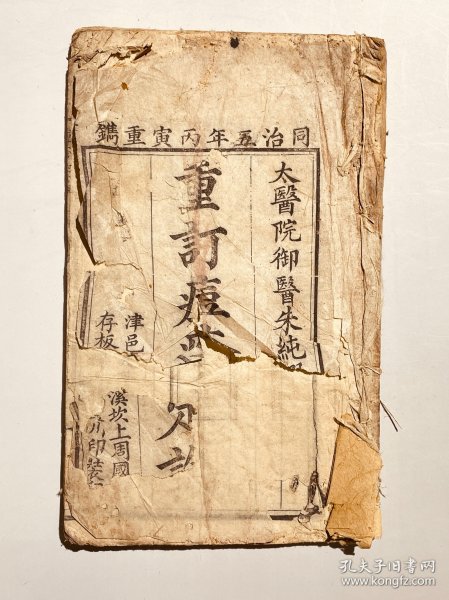 同治五年丙寅重鐫
太醫院御醫朱純
重訂痘
津邑
存板
溪坎上周國
印裝
孔夫子旧书网
www.kongfz.com